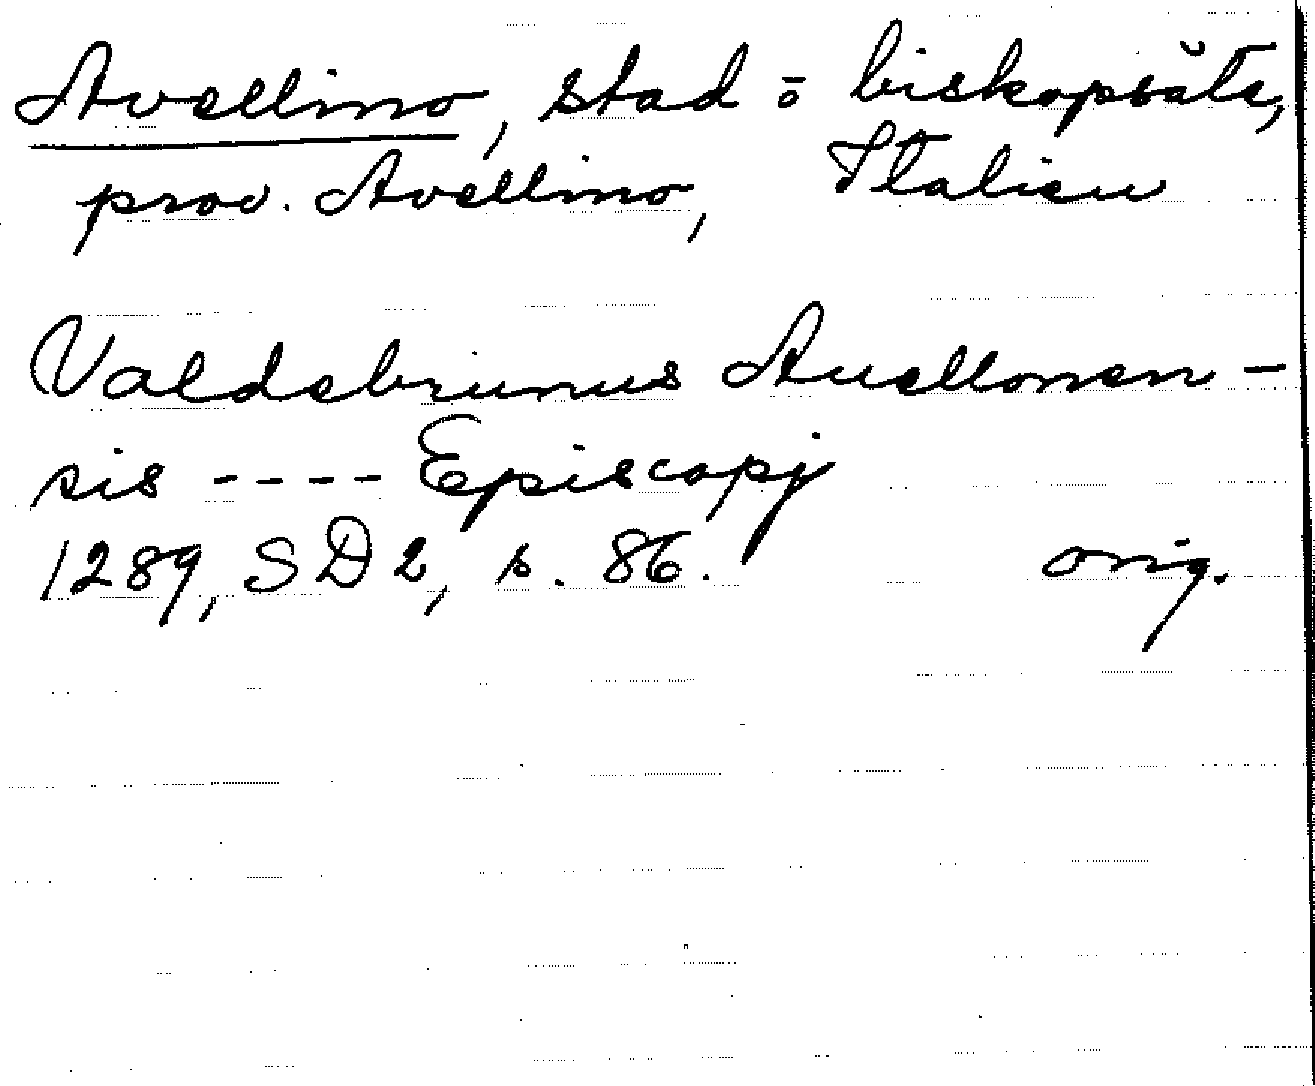 Avellino, stad o biskopssäte,
prov. Avellino, Italien
Valdebrunus Auellonen-
sis ---- Episcopj
1289, SD 2, s. 86. orig.